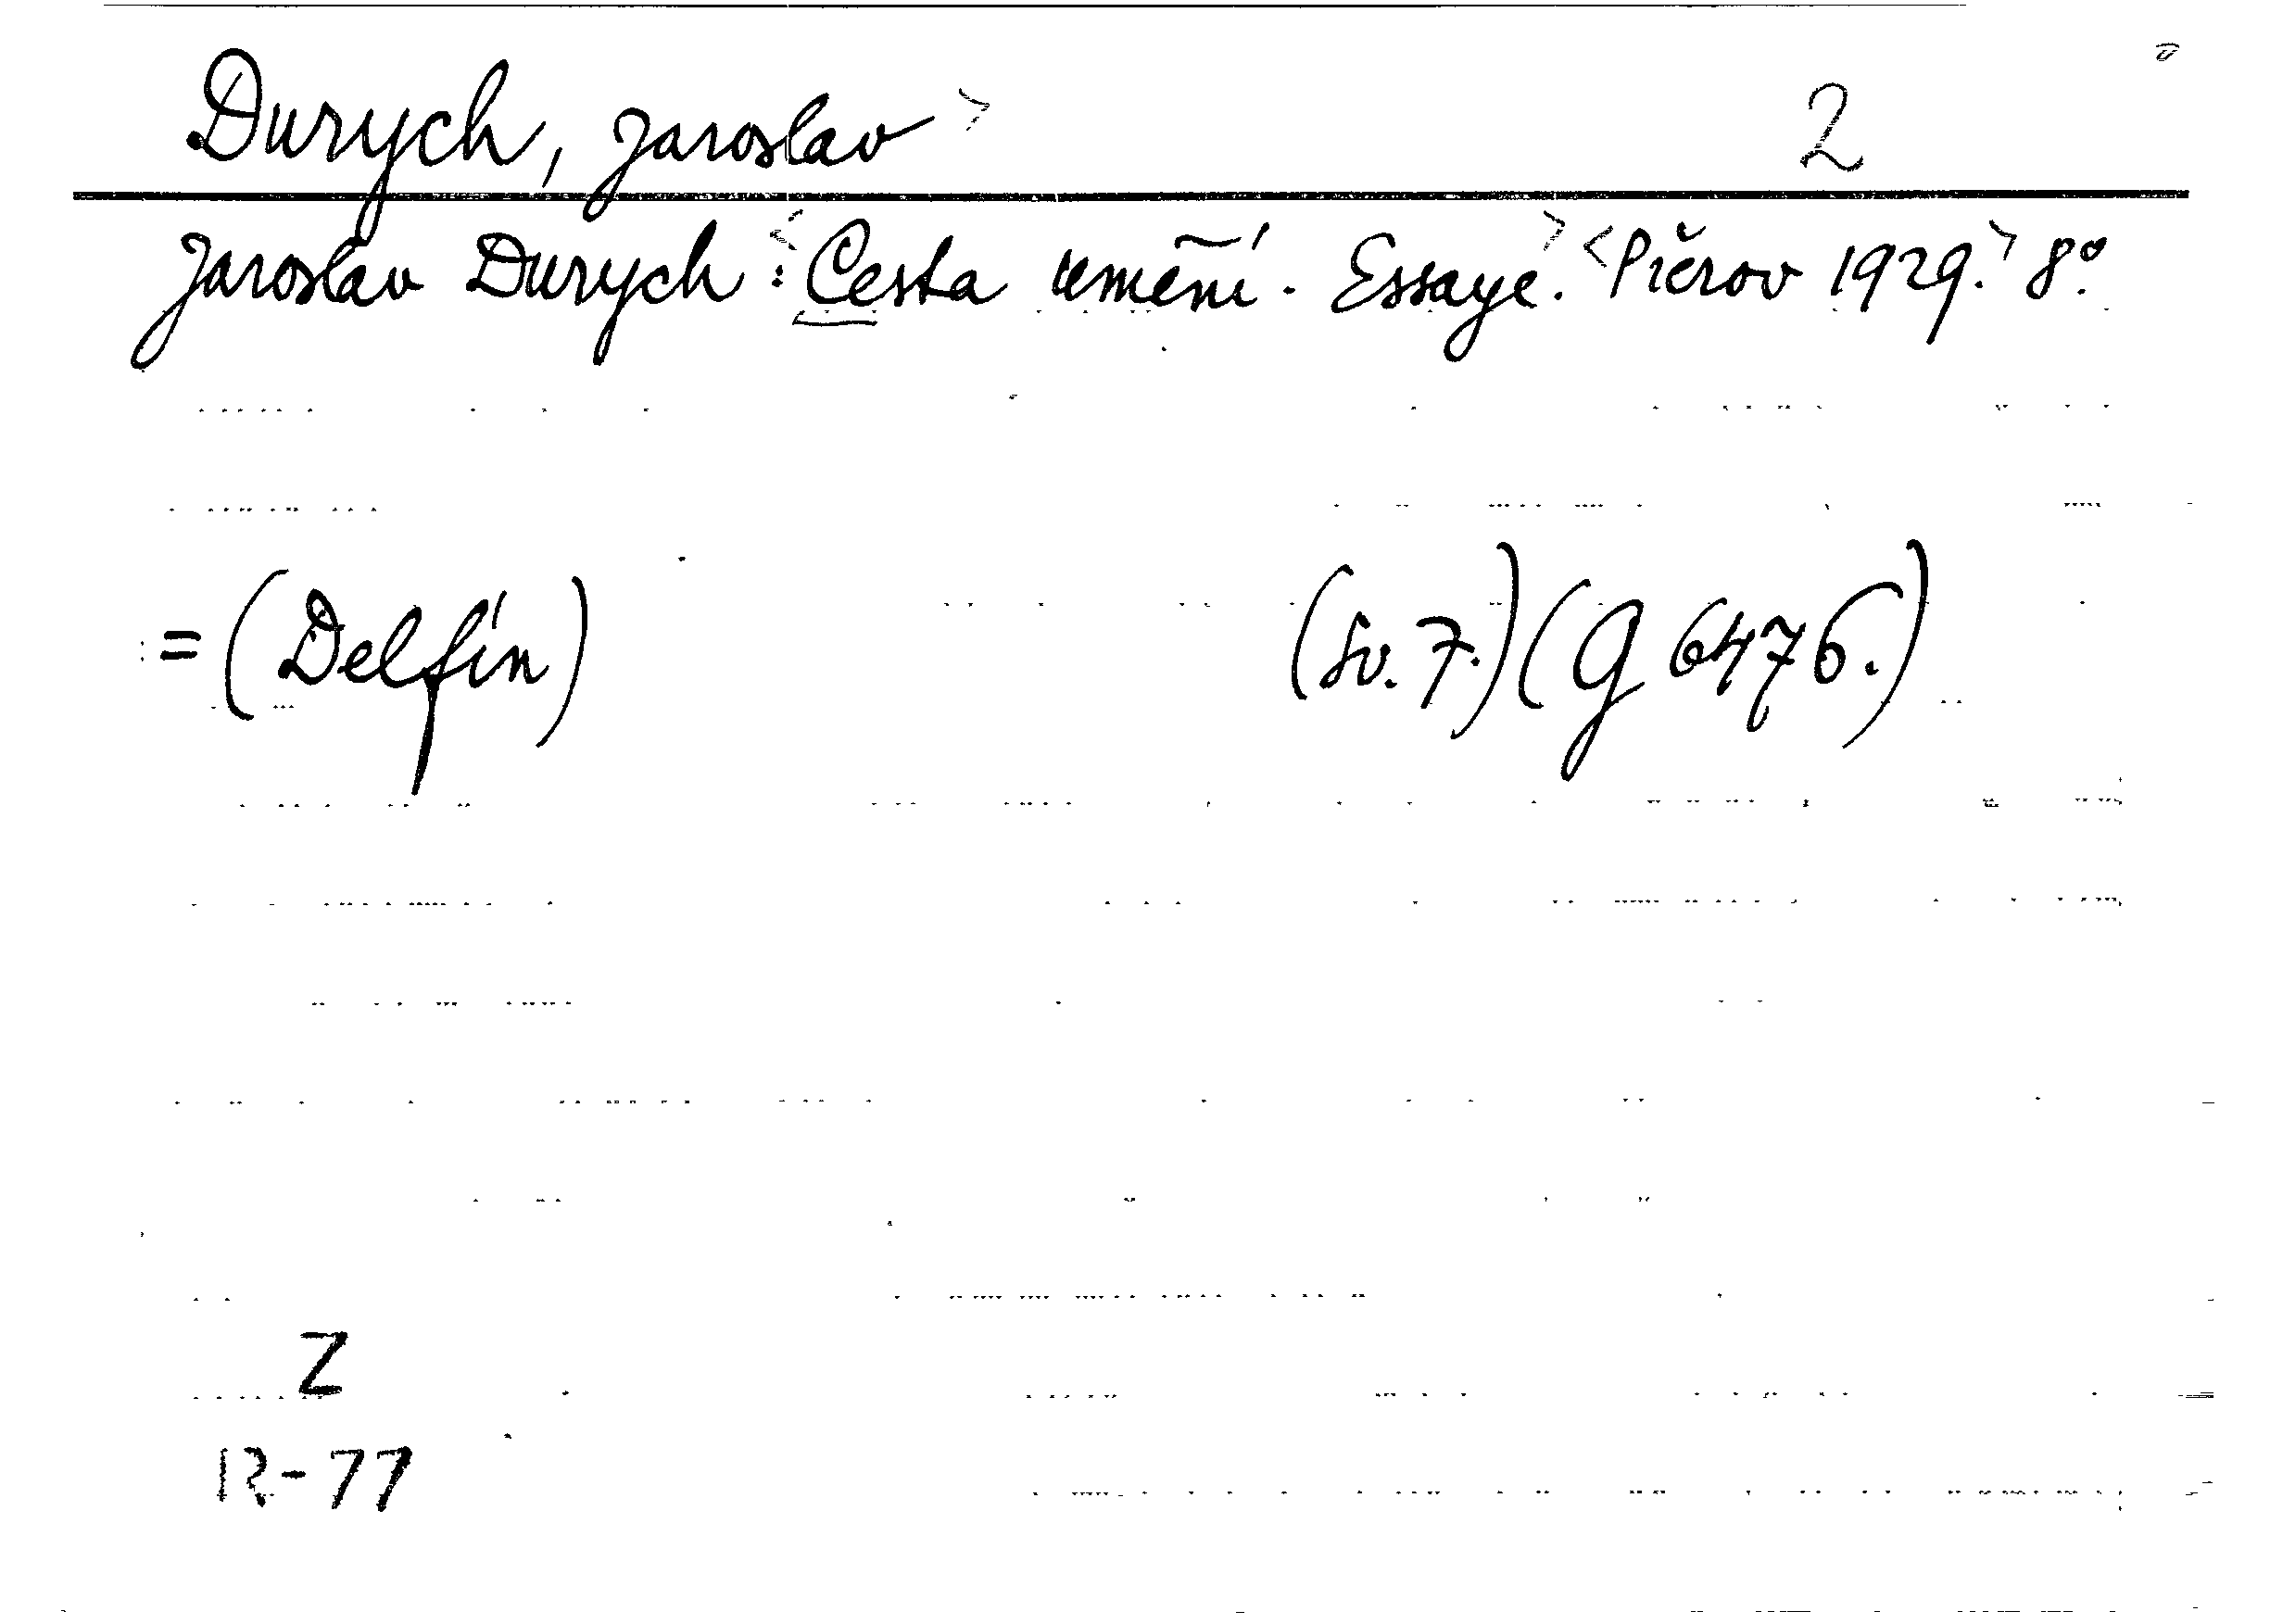 Durych, Jaroslav > 2
Jaroslav Durych : <Cesta umění. Essaye.> <Přerov 1929.> 8°.
= (Delfín) (sv. 7.) (G 6476.)
Z
12-77